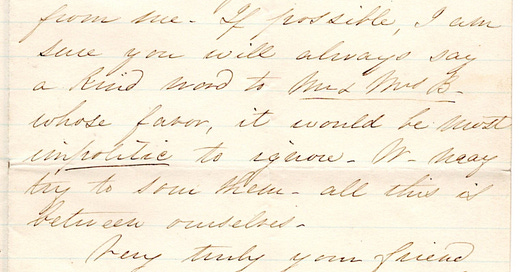 from me - If possible, I am
sure you will always say
a kind word to Mrs B -
whose favor, it would be most
impolitic to ignore - W - may
try to them - all this is
between ourselves -
Very truly your friend